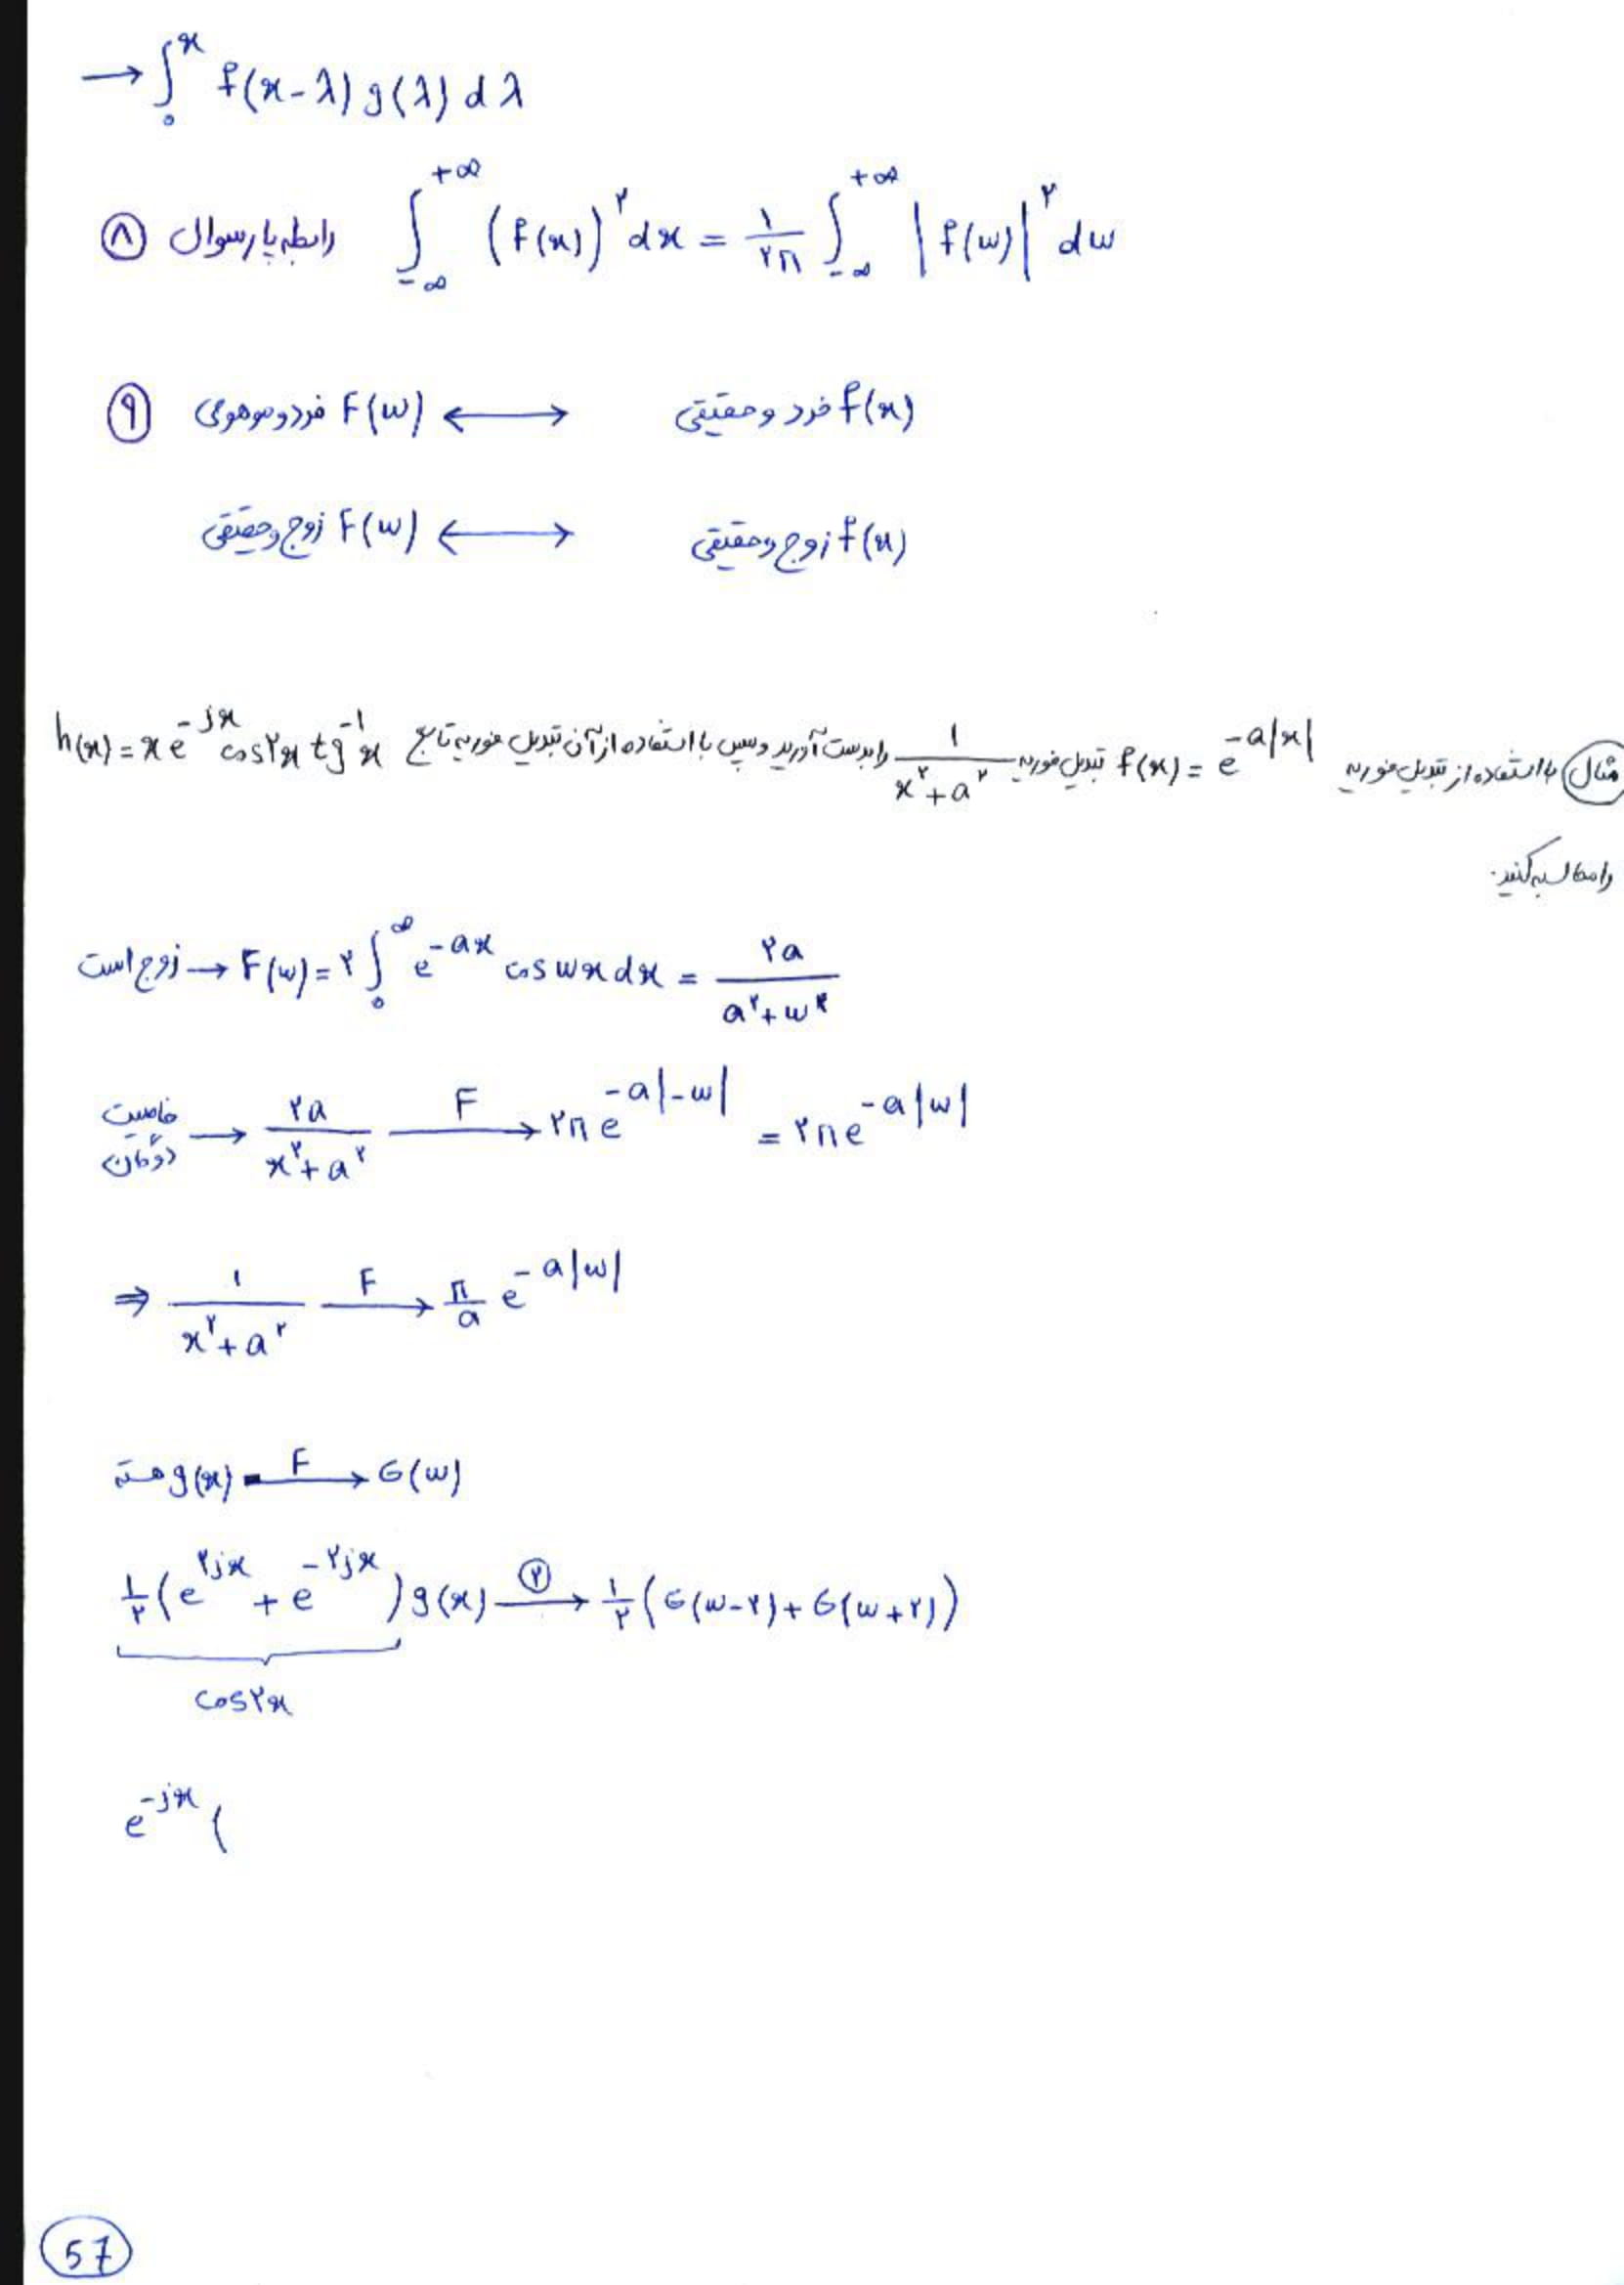 → ∫₀ˣ f(x-λ) g(λ) dλ
⑧ رابطه پارسوال ∫_{-∞}^{+∞} (f(x))^۲ dx = ۱/۲π ∫_{-∞}^{+∞} |f(w)|^۲ dw
⑨ F(w) فرد و موهومی ⟷ f(x) فرد و حقیقی
F(w) زوج و حقیقی ⟷ f(x) زوج و حقیقی
مثال با استفاده از تبدیل فوریه f(x) = e^{-a|x|} تبدیل فوریه ۱/(x^۲+a^۲) را بدست آورید و سپس با استفاده از آن تبدیل فوریه تابع h(x) = x e^{-jx} cos۲x tg^{-1} x
را محاسبه کنید.
زوج است → F(w) = ۲ ∫₀^∞ e^{-ax} cos wx dx = ۲a/(a^۲+w^۲)
خاصیت دوگان → ۲a/(x^۲+a^۲) —F→ ۲π e^{-a|-w|} = ۲π e^{-a|w|}
⇒ ۱/(x^۲+a^۲) —F→ π/a e^{-a|w|}
g(x) —F→ G(w)
۱/۲ (e^{۲jx} + e^{-۲jx}) g(x) —②→ ۱/۲ (G(w-۲) + G(w+۲))
cos۲x
e^{-jx} (
57